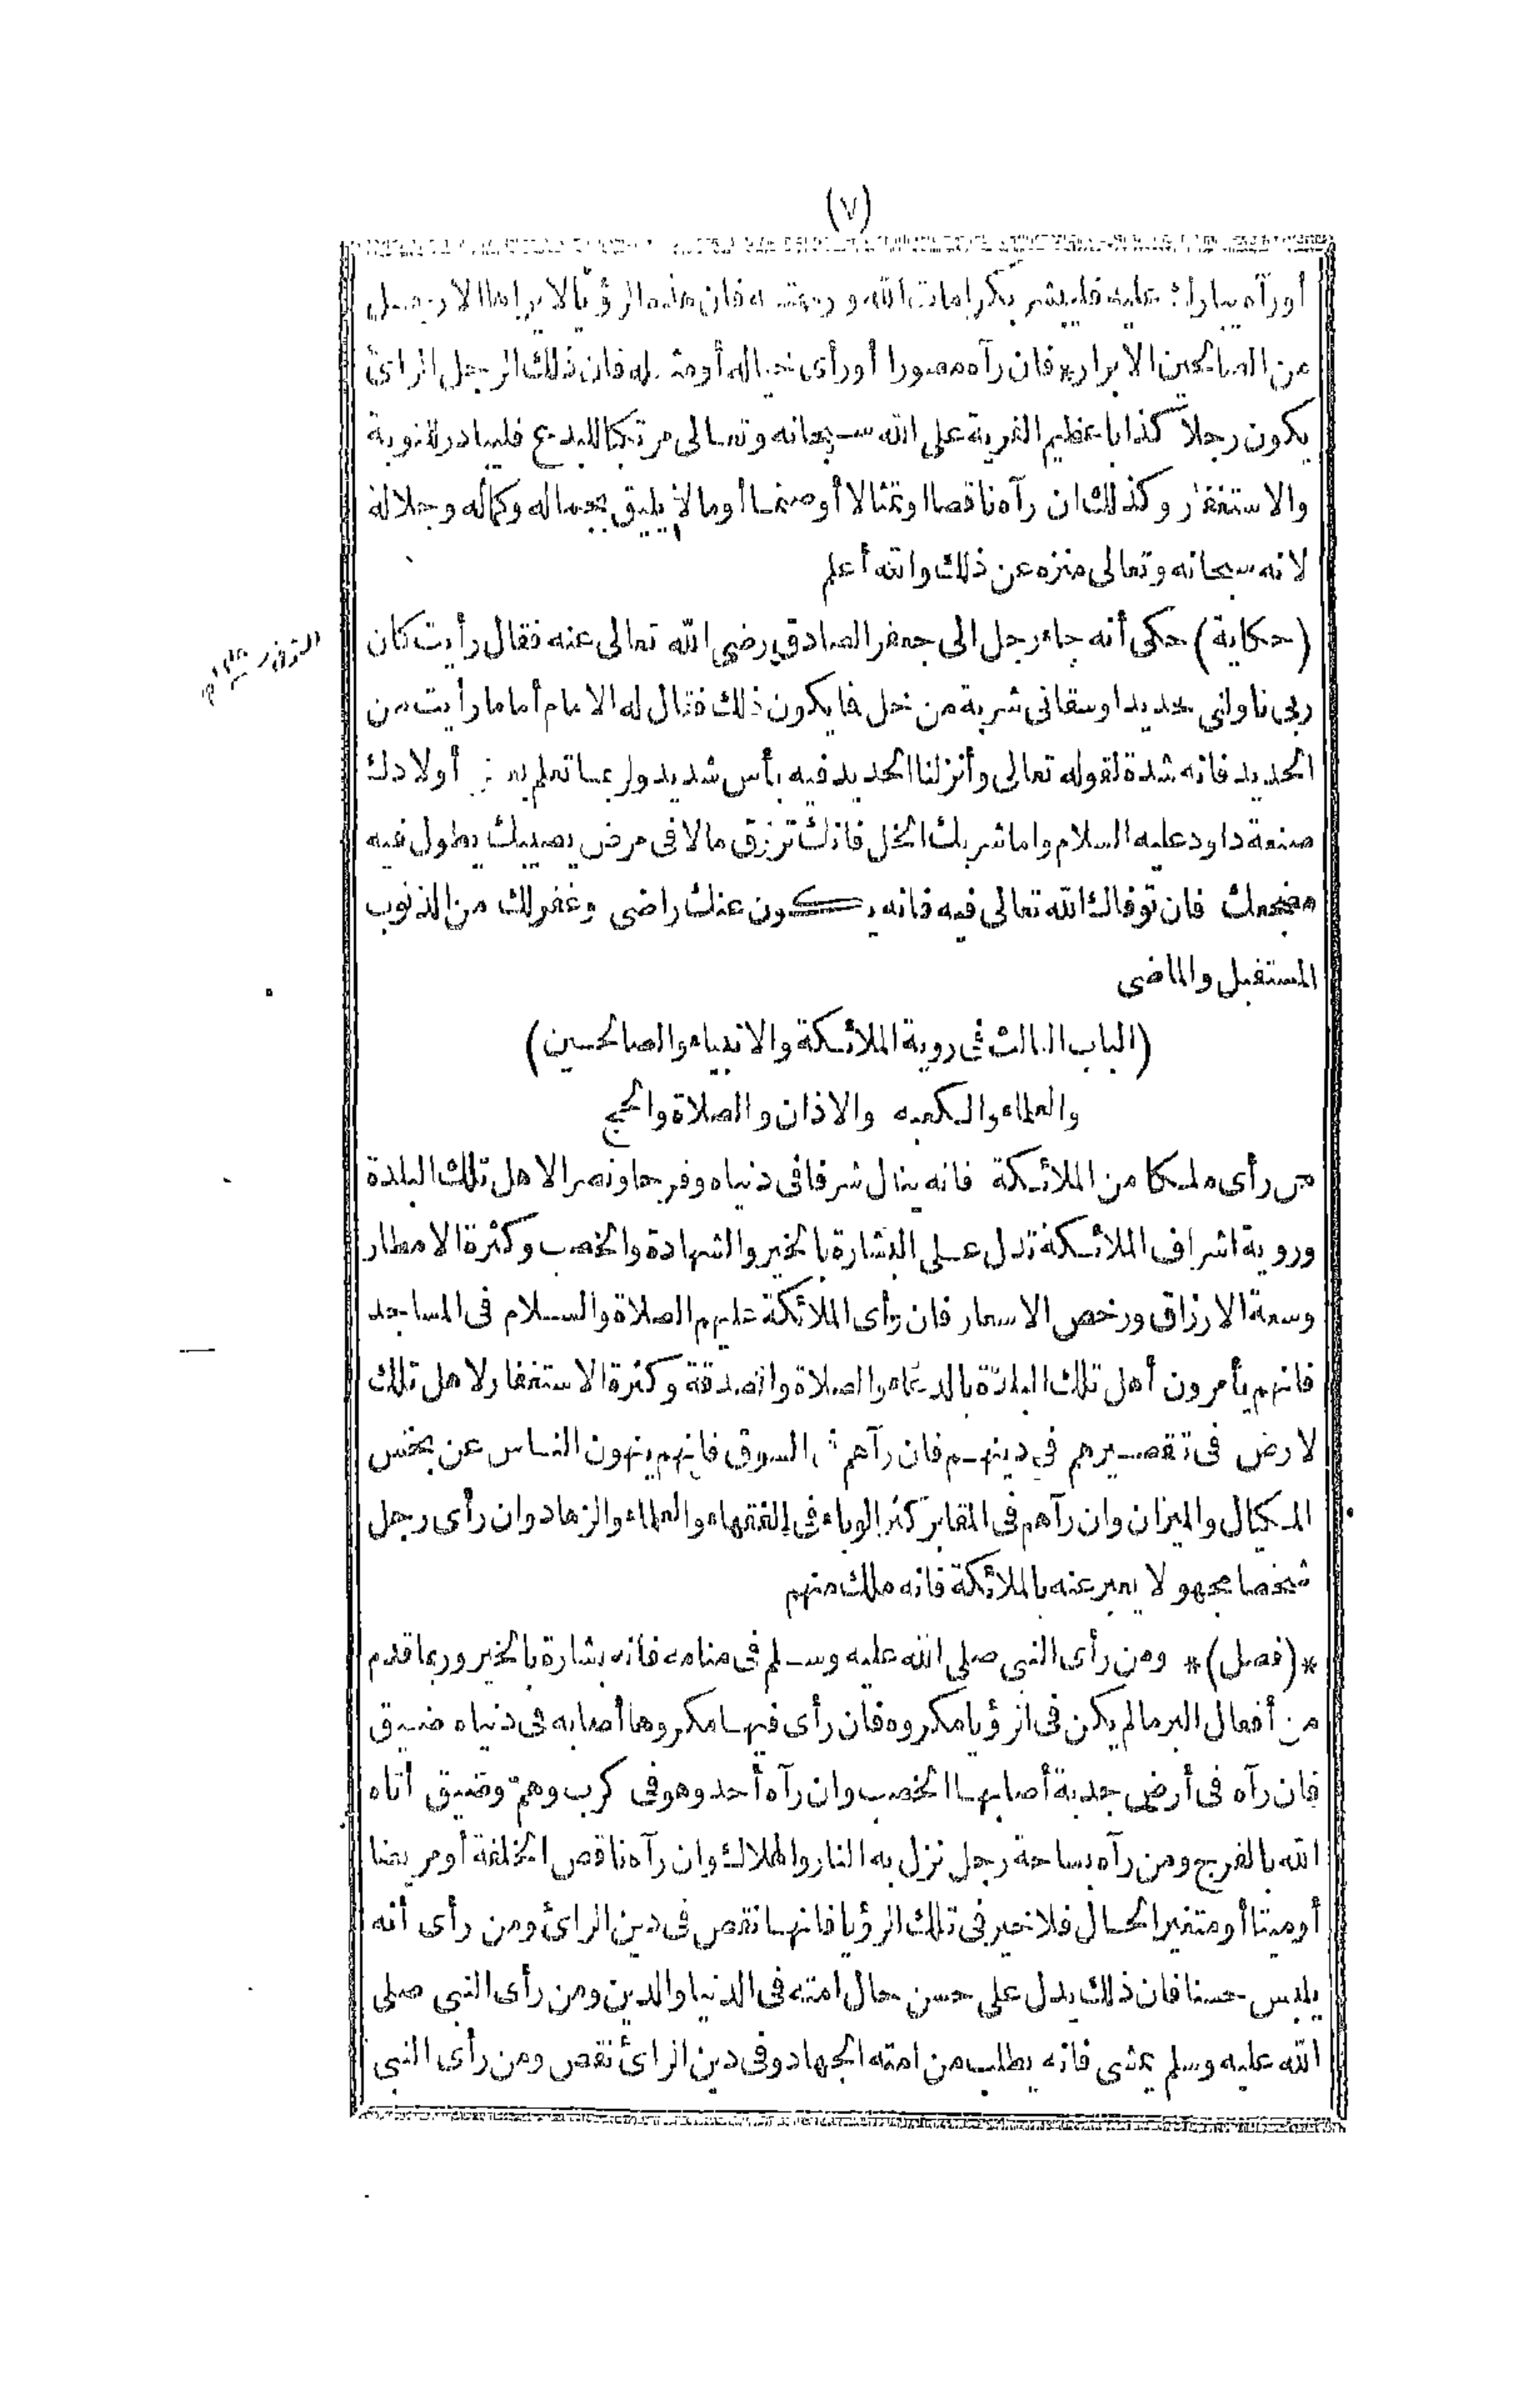 (٧)
أورآه يبارك عليه فليبشر بكرامات الله ورحمته فان هذه الرؤيا لايراها الا رجل
من الصالحين الابرار فان رآه مصورا أورأى خياله أومثله فان ذلك الرجل الرائى
يكون رجلا كذابا عظيم الفرية على الله سبحانه وتعالى مرتكبا للبدع فليبادر لتوبة
والاستغفار وكذلك ان رآه ناقصا اوتمثالا أوصنما أومالا يليق بجماله وكماله وجلاله
لانه سبحانه وتعالى منزه عن ذلك والله أعلم
(حكاية) حكى أنه جاء رجل الى جعفر الصادق رضى الله تعالى عنه فقال رأيت كان
ربى ناولنى حديدا وسقانى شربة من خل فايكون ذلك فقال له الامام أما ما رأيت من
الحديد فانه شدة لقوله تعالى وأنزلنا الحديد فيه بأس شديد ولربما تعلم أولادك
صنعة داود عليه السلام واما شربك الخل فانك ترزق مالا فى مرض يصيبك يطول فيه
مضجعك فان توفاك الله تعالى فيه فانه يكون عنك راضى وغفر لك من الذنوب
المستقبل والماضى
(الباب الثالث فى روية الملائكة والانبياء والصالحين)
والعلماء والكعبه والاذان والصلاة والحج
من رأى ملكا من الملائكة فانه ينال شرفا فى دنياه وفرحا ونصرا لاهل تلك البلدة
وروية اشراف الملائكة تدل على البشارة بالخير والشهادة والخصب وكثرة الامطار
وسعة الارزاق ورخص الاسعار فان رأى الملائكة عليهم الصلاة والسلام فى المساجد
فانهم يأمرون أهل تلك البلدة بالدعاء والصلاة والصدقة وكثرة الاستغفار لاهل تلك
لارض فى تقصيرهم فى دينهم فان رآهم السوق فانهم ينهون الناس عن بخس
المكيال والميزان وان رآهم فى المقابر كثر الوباء فى الفقهاء والعلماء والزهاد وان رأى رجل
شخصا مجهولا يعبر عنه بالملائكة فانه ملك منهم
*(فصل)* ومن رأى النبى صلى الله عليه وسلم فى منامه فانه بشارة بالخير وربما قدم
من أفعال البر مالم يكن فى الرؤيا مكروه فان رأى فيها مكروها أصابه فى دنياه ضيق
فان رآه فى أرض جدبة أصابها الخصب وان رآه أحد وهو فى كرب وهم وضيق أتاه
الله بالفرج ومن رآه بساحة رجل نزل به النار والهلاك وان رآه ناقص الخلقة أومريضا
أوميتا أومتغير الحال فلا خير فى تلك الرؤيا فانها نقص فى دين الرائى ومن رأى أنه
يلبس حسنا فان ذلك يدل على حسن حال امته فى الدنيا والدين ومن رأى النبى صلى
الله عليه وسلم يمشى فانه يطلب من امته الجهاد وفى دين الرائى نقص ومن رأى النبى